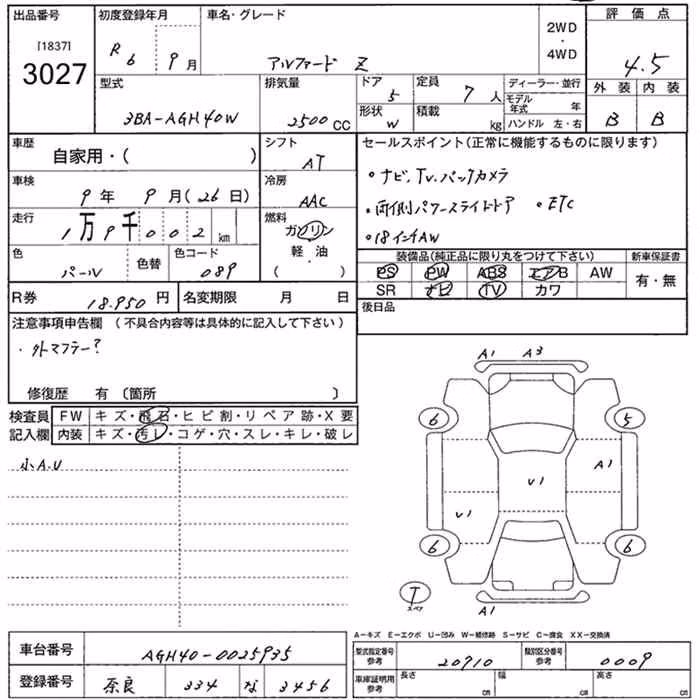 出品番号 [1837] 3027
初度登録年月 R 6 年 9 月
車名・グレード アルファード Z
2WD ・ 4WD
評価点 4.5
外装 B 内装 B
型式 3BA-AGH40W
排気量 2500 CC
ドア 5 形状 W
定員 7 人 積載 kg
ディーラー・並行
モデル年式 年
ハンドル 左・右
車歴 自家用・( )
シフト AT
車検 9 年 9 月(26 日)
冷房 AAC
走行 1万9千002 km
燃料 ガソリン 軽・油 ( )
色 パール 色替 色コード 089
セールスポイント(正常に機能するものに限ります)
・ナビ、Tv、バックカメラ
・両側パワースライドドア ・ETC
・18インチAW
装備品(純正品に限り丸をつけて下さい)
PS PW ABS エアB AW
SR ナビ TV カワ
新車保証書 有・無
R券 18.950 円 名変期限 月 日
後日品
注意事項申告欄 (不具合内容等は具体的に記入して下さい)
・外マフラー?
修復歴 有〔箇所 〕
検査員記入欄
FW キズ・飛石・ヒビ割・リペア跡・X要
内装 キズ・汚レ・コゲ・穴・スレ・キレ・破レ
小A.U
A1 A3
6 5
A1
V1
V1
6 6
T スペア
A1
A―キズ E―エクボ U―凹み W―補修跡 S―サビ C―腐食 XX―交換済
車台番号 AGH40-0025935
型式指定番号 参考 20910
類別区分番号 参考 0009
登録番号 奈良 334 な 3456
車庫証明用 参考 長さ cm 幅 cm 高さ cm